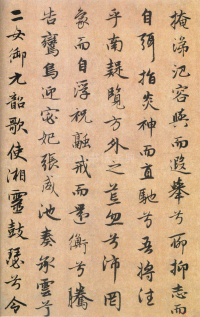 掩涕氾容與而遐舉兮聊抑志而
自弭指炎神而直馳兮吾將往
乎南疑覽方外之荒忽兮沛罔
象而自浮祝融戒而還衡兮騰
告鸞鳥迎宓妃張咸池奏承雲兮
二女御九韶歌使湘靈鼓瑟兮令